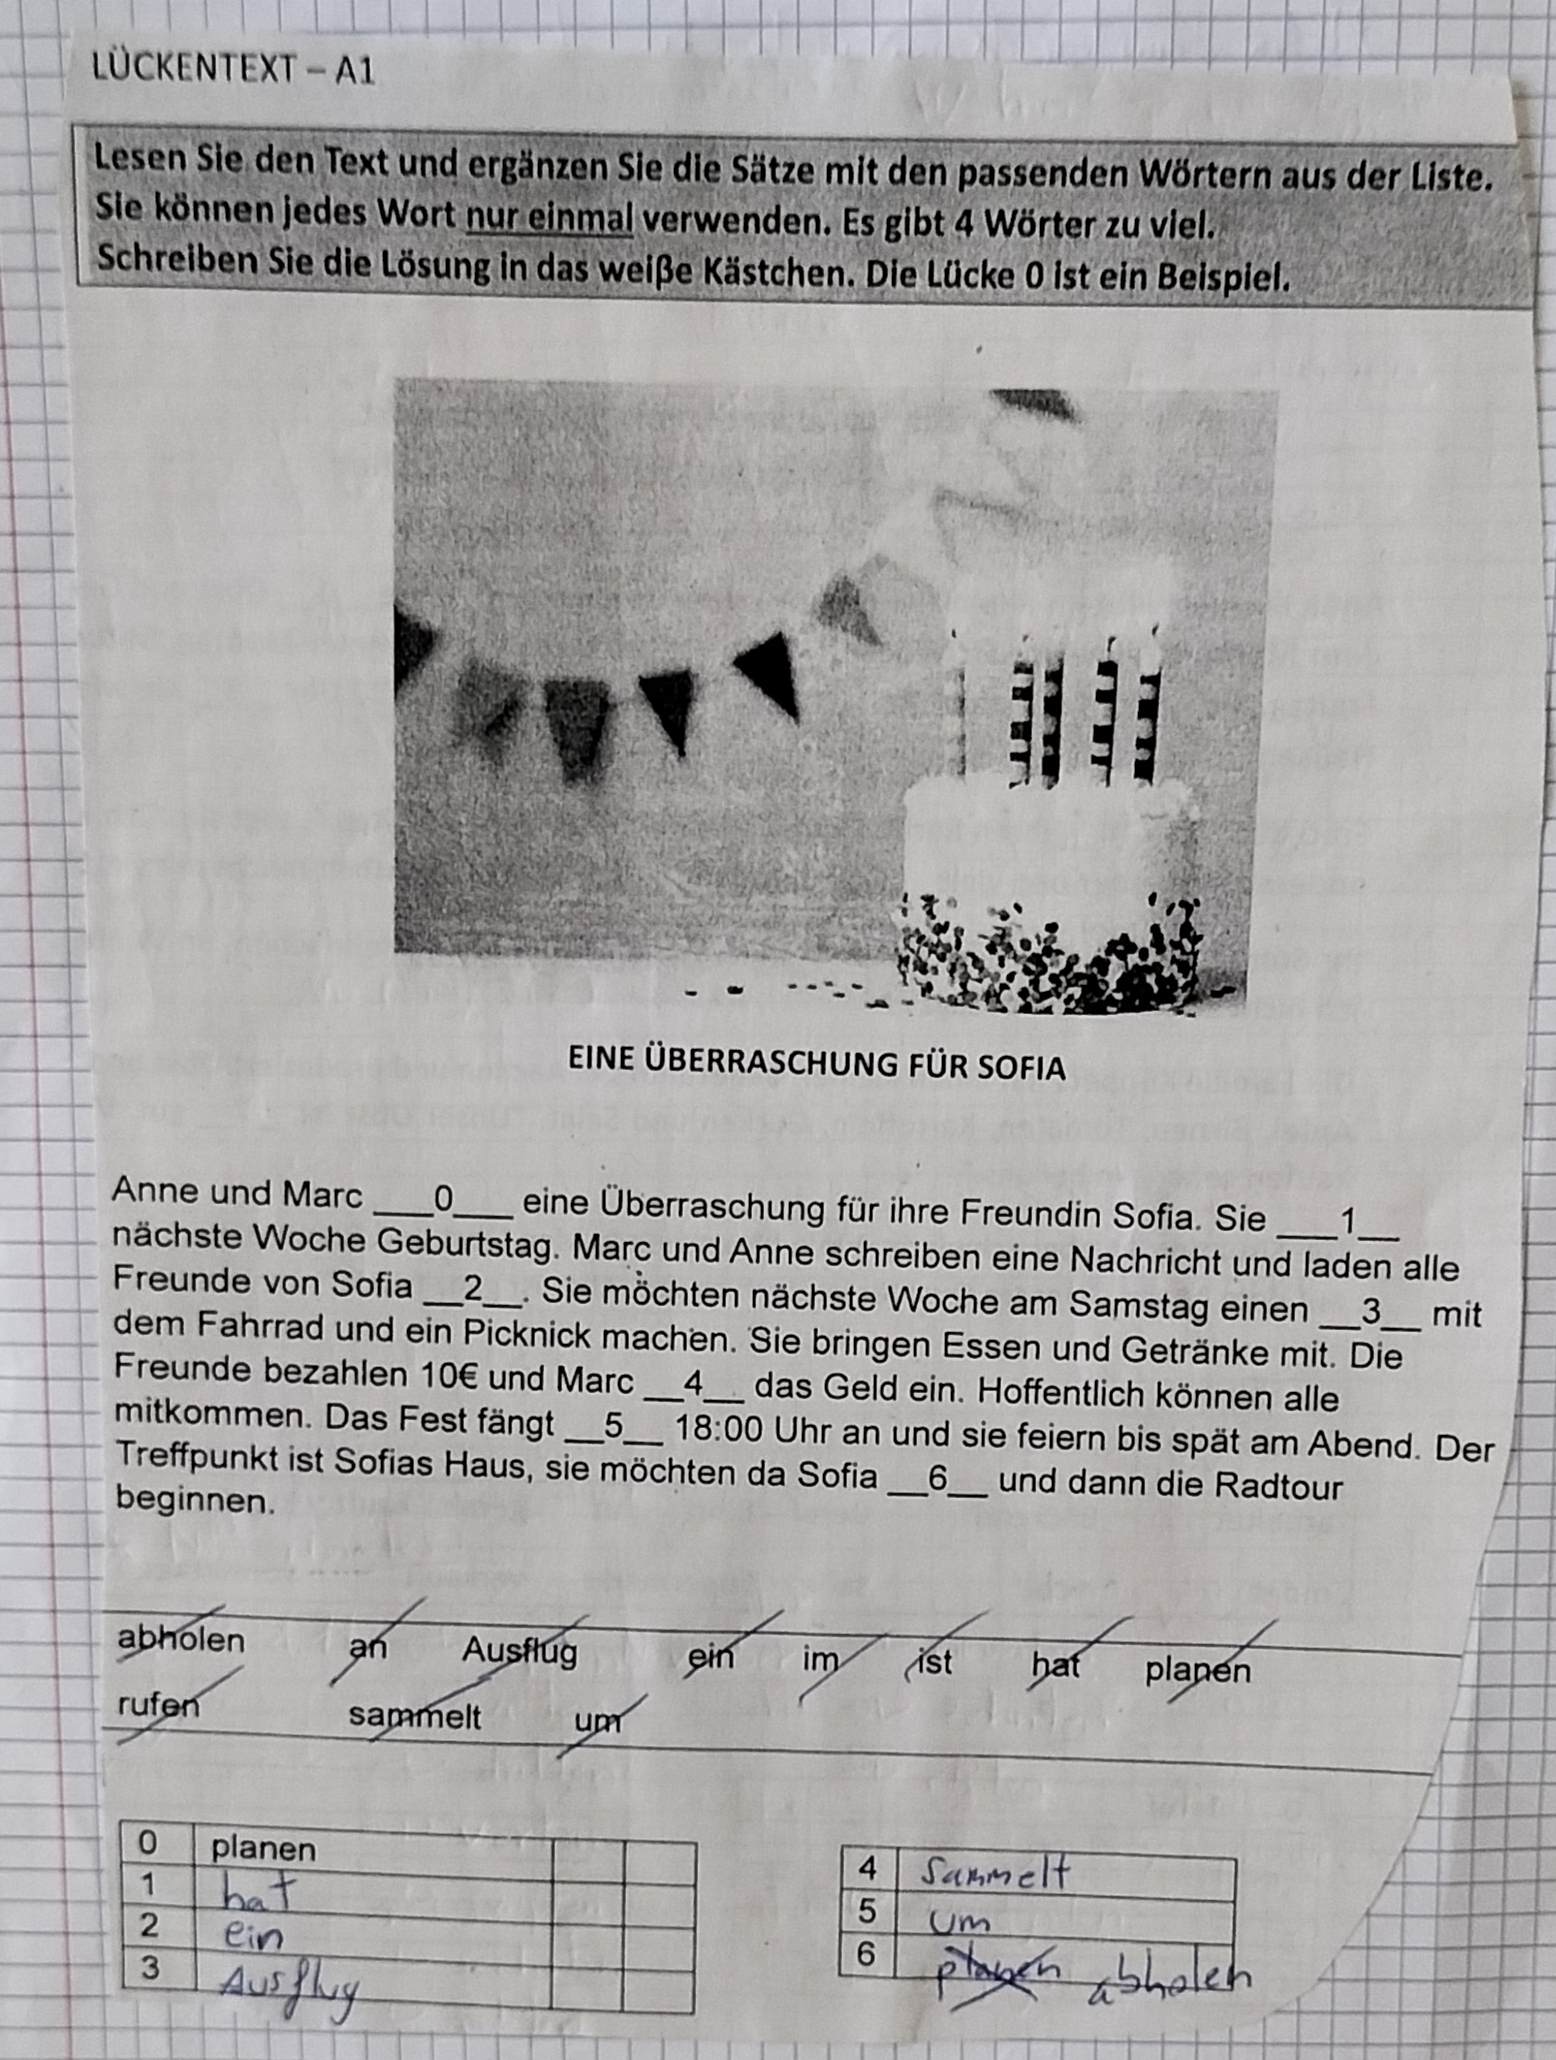 LÜCKENTEXT – A1
Lesen Sie den Text und ergänzen Sie die Sätze mit den passenden Wörtern aus der Liste.
Sie können jedes Wort nur einmal verwenden. Es gibt 4 Wörter zu viel.
Schreiben Sie die Lösung in das weiße Kästchen. Die Lücke 0 ist ein Beispiel.
EINE ÜBERRASCHUNG FÜR SOFIA
Anne und Marc ___0___ eine Überraschung für ihre Freundin Sofia. Sie ___1__
nächste Woche Geburtstag. Marc und Anne schreiben eine Nachricht und laden alle
Freunde von Sofia __2__. Sie möchten nächste Woche am Samstag einen __3__ mit
dem Fahrrad und ein Picknick machen. Sie bringen Essen und Getränke mit. Die
Freunde bezahlen 10€ und Marc __4__ das Geld ein. Hoffentlich können alle
mitkommen. Das Fest fängt __5__ 18:00 Uhr an und sie feiern bis spät am Abend. Der
Treffpunkt ist Sofias Haus, sie möchten da Sofia __6__ und dann die Radtour
beginnen.
abholen an Ausflug ein im ist hat planen
rufen sammelt um
0 planen
1 hat
2 ein
3 Ausflug
4 sammelt
5 um
6 planen abholen